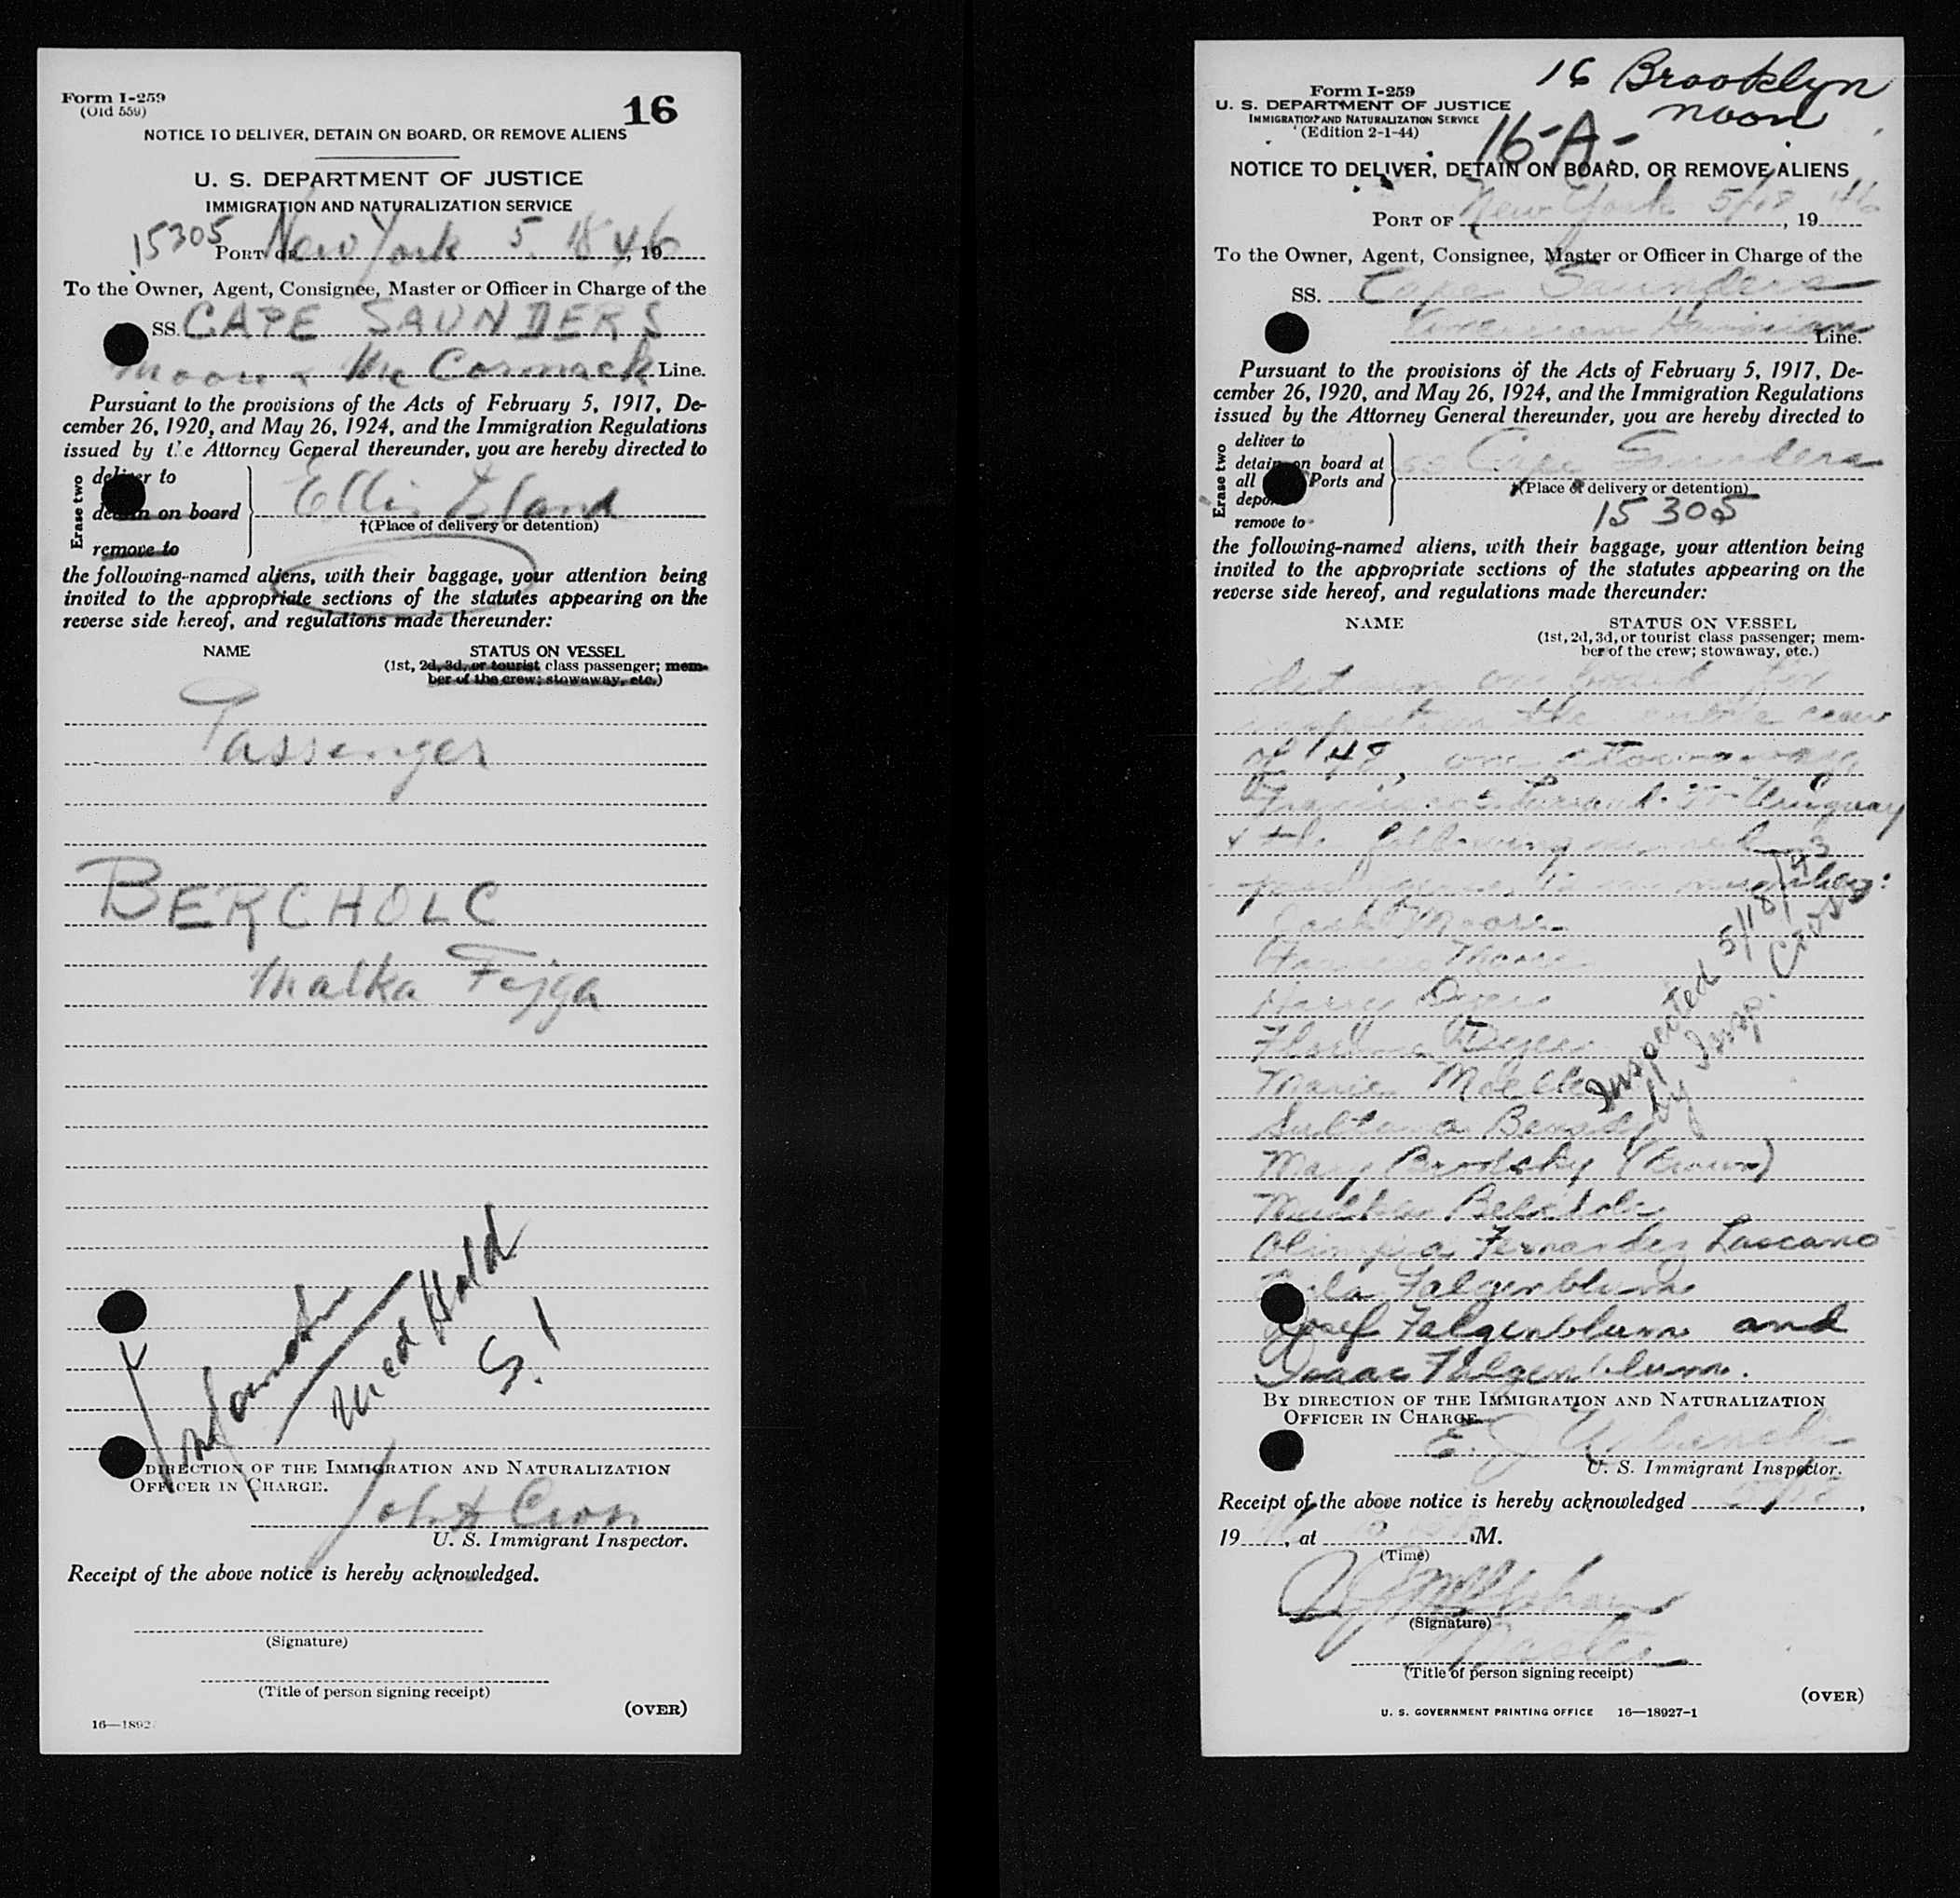 Form I-259
(Old 559)
16
NOTICE TO DELIVER, DETAIN ON BOARD, OR REMOVE ALIENS
U. S. DEPARTMENT OF JUSTICE
IMMIGRATION AND NATURALIZATION SERVICE
15305
PORT OF New York 5. 18 46, 19
To the Owner, Agent, Consignee, Master or Officer in Charge of the
SS. CAPE SAUNDERS
Moore McCormack Line.
Pursuant to the provisions of the Acts of February 5, 1917, De-
cember 26, 1920, and May 26, 1924, and the Immigration Regulations
issued by the Attorney General thereunder, you are hereby directed to
Erase two
deliver to
detain on board
remove to
Ellis Island
†(Place of delivery or detention)
the following-named aliens, with their baggage, your attention being
invited to the appropriate sections of the statutes appearing on the
reverse side hereof, and regulations made thereunder:
NAME STATUS ON VESSEL
(1st, 2d, 3d, or tourist class passenger; mem-
ber of the crew; stowaway, etc.)
Passenger
BERCHOLC
Malka Fejga
Med Hold
S. I
DIRECTION OF THE IMMIGRATION AND NATURALIZATION
OFFICER IN CHARGE.
John
U. S. Immigrant Inspector.
Receipt of the above notice is hereby acknowledged.
(Signature)
(Title of person signing receipt)
(OVER)
16—1892
16 Brooklyn
noon
Form I-259
U. S. DEPARTMENT OF JUSTICE
IMMIGRATION AND NATURALIZATION SERVICE
(Edition 2-1-44)
16-A-
NOTICE TO DELIVER, DETAIN ON BOARD, OR REMOVE ALIENS
PORT OF New York 5/18, 19 46
To the Owner, Agent, Consignee, Master or Officer in Charge of the
SS. Cape Saunders
American Hawaiian Line.
Pursuant to the provisions of the Acts of February 5, 1917, De-
cember 26, 1920, and May 26, 1924, and the Immigration Regulations
issued by the Attorney General thereunder, you are hereby directed to
Erase two
deliver to
detain on board at
all Ports and
deport
remove to
SS Cape Saunders
†(Place of delivery or detention)
15305
the following-named aliens, with their baggage, your attention being
invited to the appropriate sections of the statutes appearing on the
reverse side hereof, and regulations made thereunder:
NAME STATUS ON VESSEL
(1st, 2d, 3d, or tourist class passenger; mem-
ber of the crew; stowaway, etc.)
detain on board for
inspection the entire crew
of 48, one stowaway
Uruguay
& the following named
passengers
Moore
Frances Moore
Harry
Florence
Marie
Sultana
Mary Brodsky (Brown)
Malka Bercholc
Olimpia Fernandez Lascano
Falgenblum
Josef Falgenblum and
Isaac Falgenblum.
Inspected 5/18/
by Insp.
BY DIRECTION OF THE IMMIGRATION AND NATURALIZATION
OFFICER IN CHARGE.
E. J.
U. S. Immigrant Inspector.
Receipt of the above notice is hereby acknowledged 5/18,
19 , at M.
(Time)
(Signature)
Master
(Title of person signing receipt)
(OVER)
U. S. GOVERNMENT PRINTING OFFICE 16—18927-1